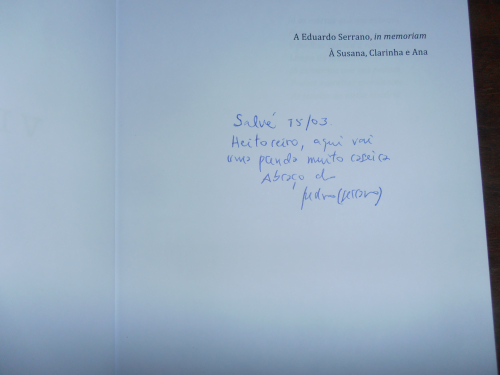 A Eduardo Serrano, in memoriam
À Susana, Clarinha e Ana
Salvé 15/03
Heitoreiro, aqui vai
uma prenda muito caseira
Abraço do
pedro (serrano)